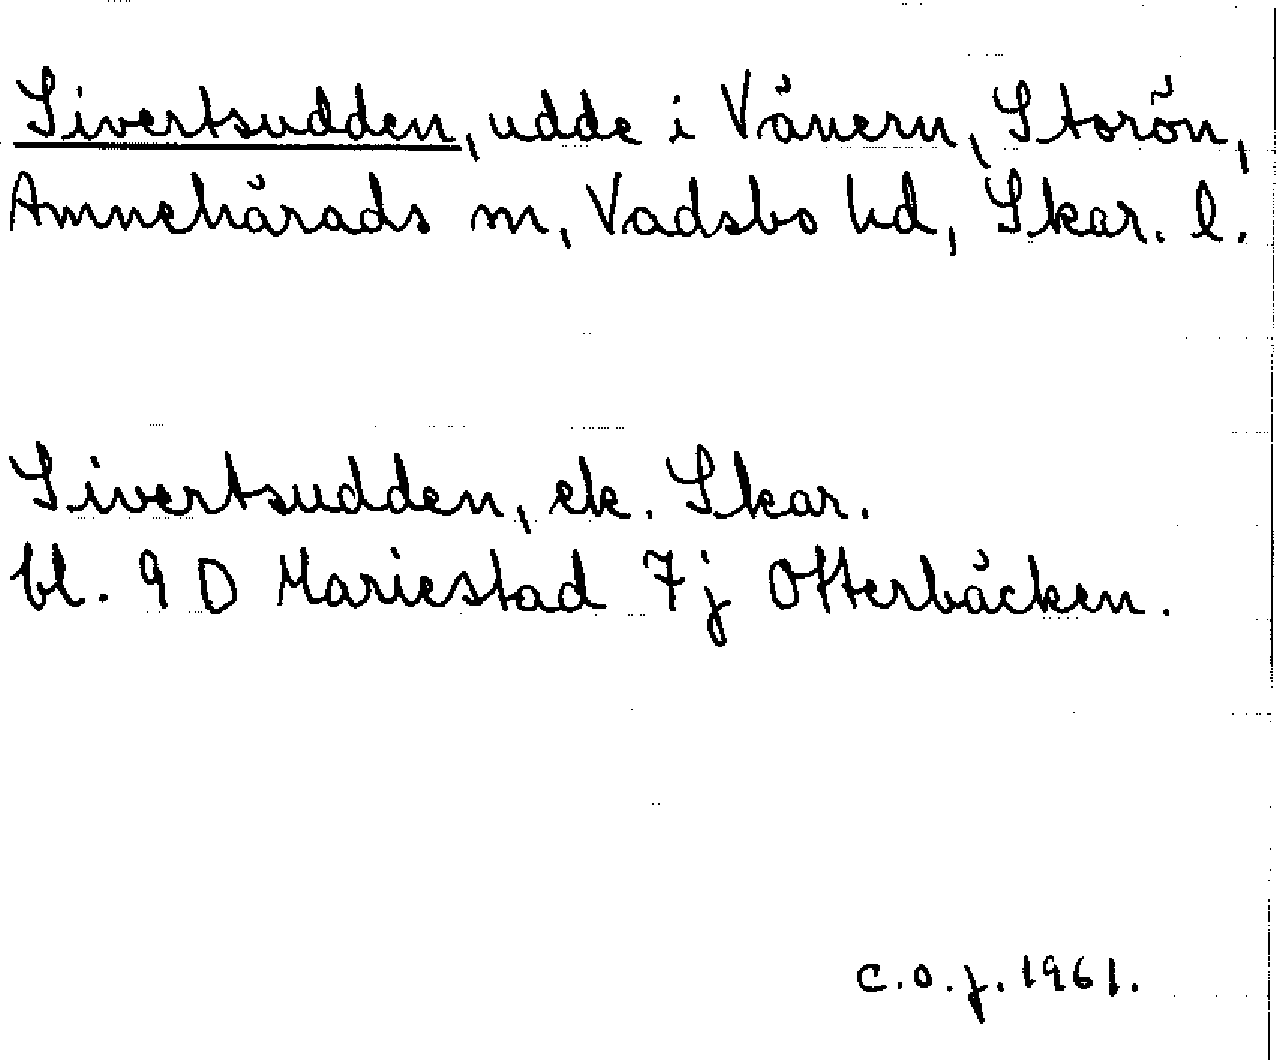 Sivertsudden, udde i Vänern, Storön,
Amnehärads sn, Vadsbo hd, Skar. l.
Sivertsudden, ek. Skar.
bl. 9 D Mariestad 7j Otterbäcken.
C.O.J. 1961.